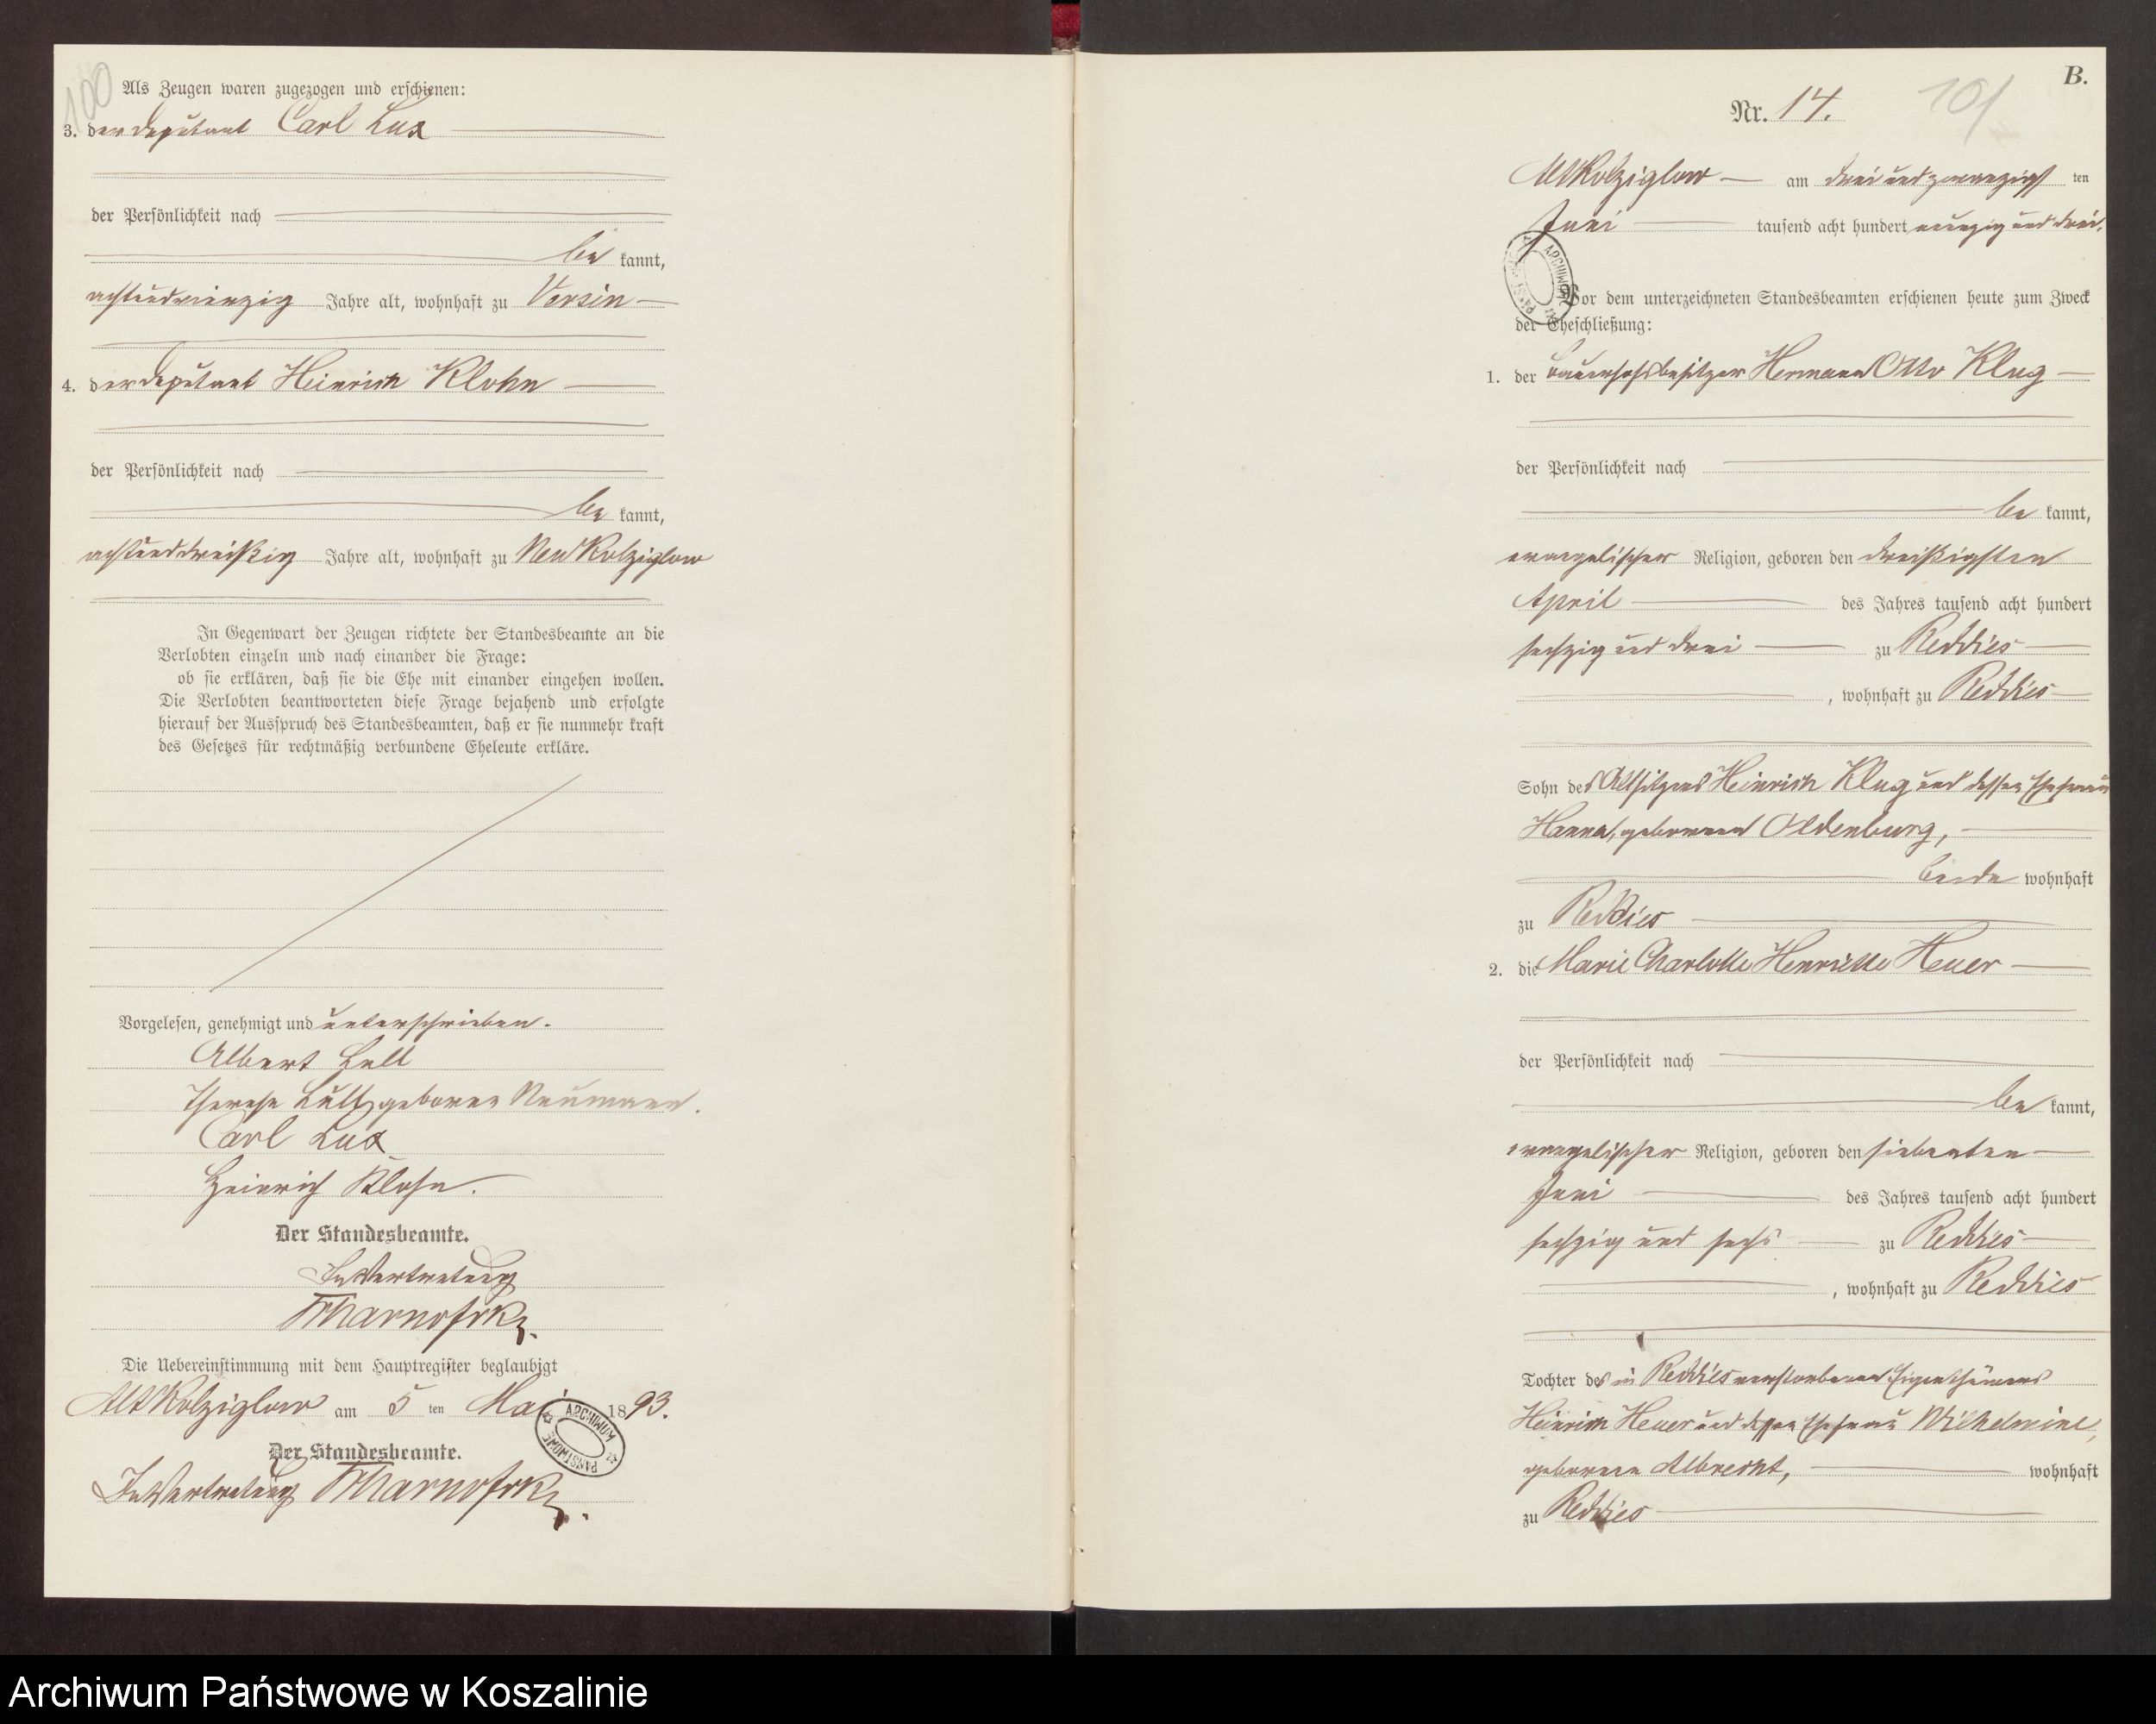 100
Als Zeugen waren zugezogen und erschienen:
3. der Deputant Carl Lux
der Persönlichkeit nach
be kannt,
achtundvierzig Jahre alt, wohnhaft zu Versin
4. der Deputant Heinrich Klohn
der Persönlichkeit nach
be kannt,
achtunddreißig Jahre alt, wohnhaft zu Neu Kolziglow
In Gegenwart der Zeugen richtete der Standesbeamte an die
Verlobten einzeln und nach einander die Frage:
ob sie erklären, daß sie die Ehe mit einander eingehen wollen.
Die Verlobten beantworteten diese Frage bejahend und erfolgte
hierauf der Ausspruch des Standesbeamten, daß er sie nunmehr kraft
des Gesetzes für rechtmäßig verbundene Eheleute erkläre.
Vorgelesen, genehmigt und unterschrieben.
Albert
Therese geborne Neumann.
Carl Lux
Heinrich Klohn.
Der Standesbeamte.
In Vertretung
Die Uebereinstimmung mit dem Hauptregister beglaubigt
Alt Kolziglow am 5 ten Mai 1893.
ARCHIWUM PAŃSTWOWE
Der Standesbeamte.
In Vertretung
B.
Nr. 14.
101
Alt Kolziglow am drei und zwanzigst ten
Juni tausend acht hundert neunzig und drei.
Vor dem unterzeichneten Standesbeamten erschienen heute zum Zweck
der Eheschließung:
1. der Bauerhofsbesitzer Hermann Otto Klug
der Persönlichkeit nach
be kannt,
evangelischer Religion, geboren den dreißigsten
April des Jahres tausend acht hundert
sechzig und drei zu Reddies
, wohnhaft zu Reddies
Sohn des Altsitzers Heinrich Klug und dessen Ehefrau
Hanna, geborenen Oldenburg,
beide wohnhaft
zu Reddies
2. die Marie Charlotte Henriette Heuer
der Persönlichkeit nach
be kannt,
evangelischer Religion, geboren den siebenten
Juni des Jahres tausend acht hundert
sechzig und sechs zu Reddies
, wohnhaft zu Reddies
Tochter des in Reddies verstorbenen Eigenthümers
Heinrich Heuer und dessen Ehefrau Wilhelmine,
geborenen Albrecht, wohnhaft
zu Reddies
Archiwum Państwowe w Koszalinie